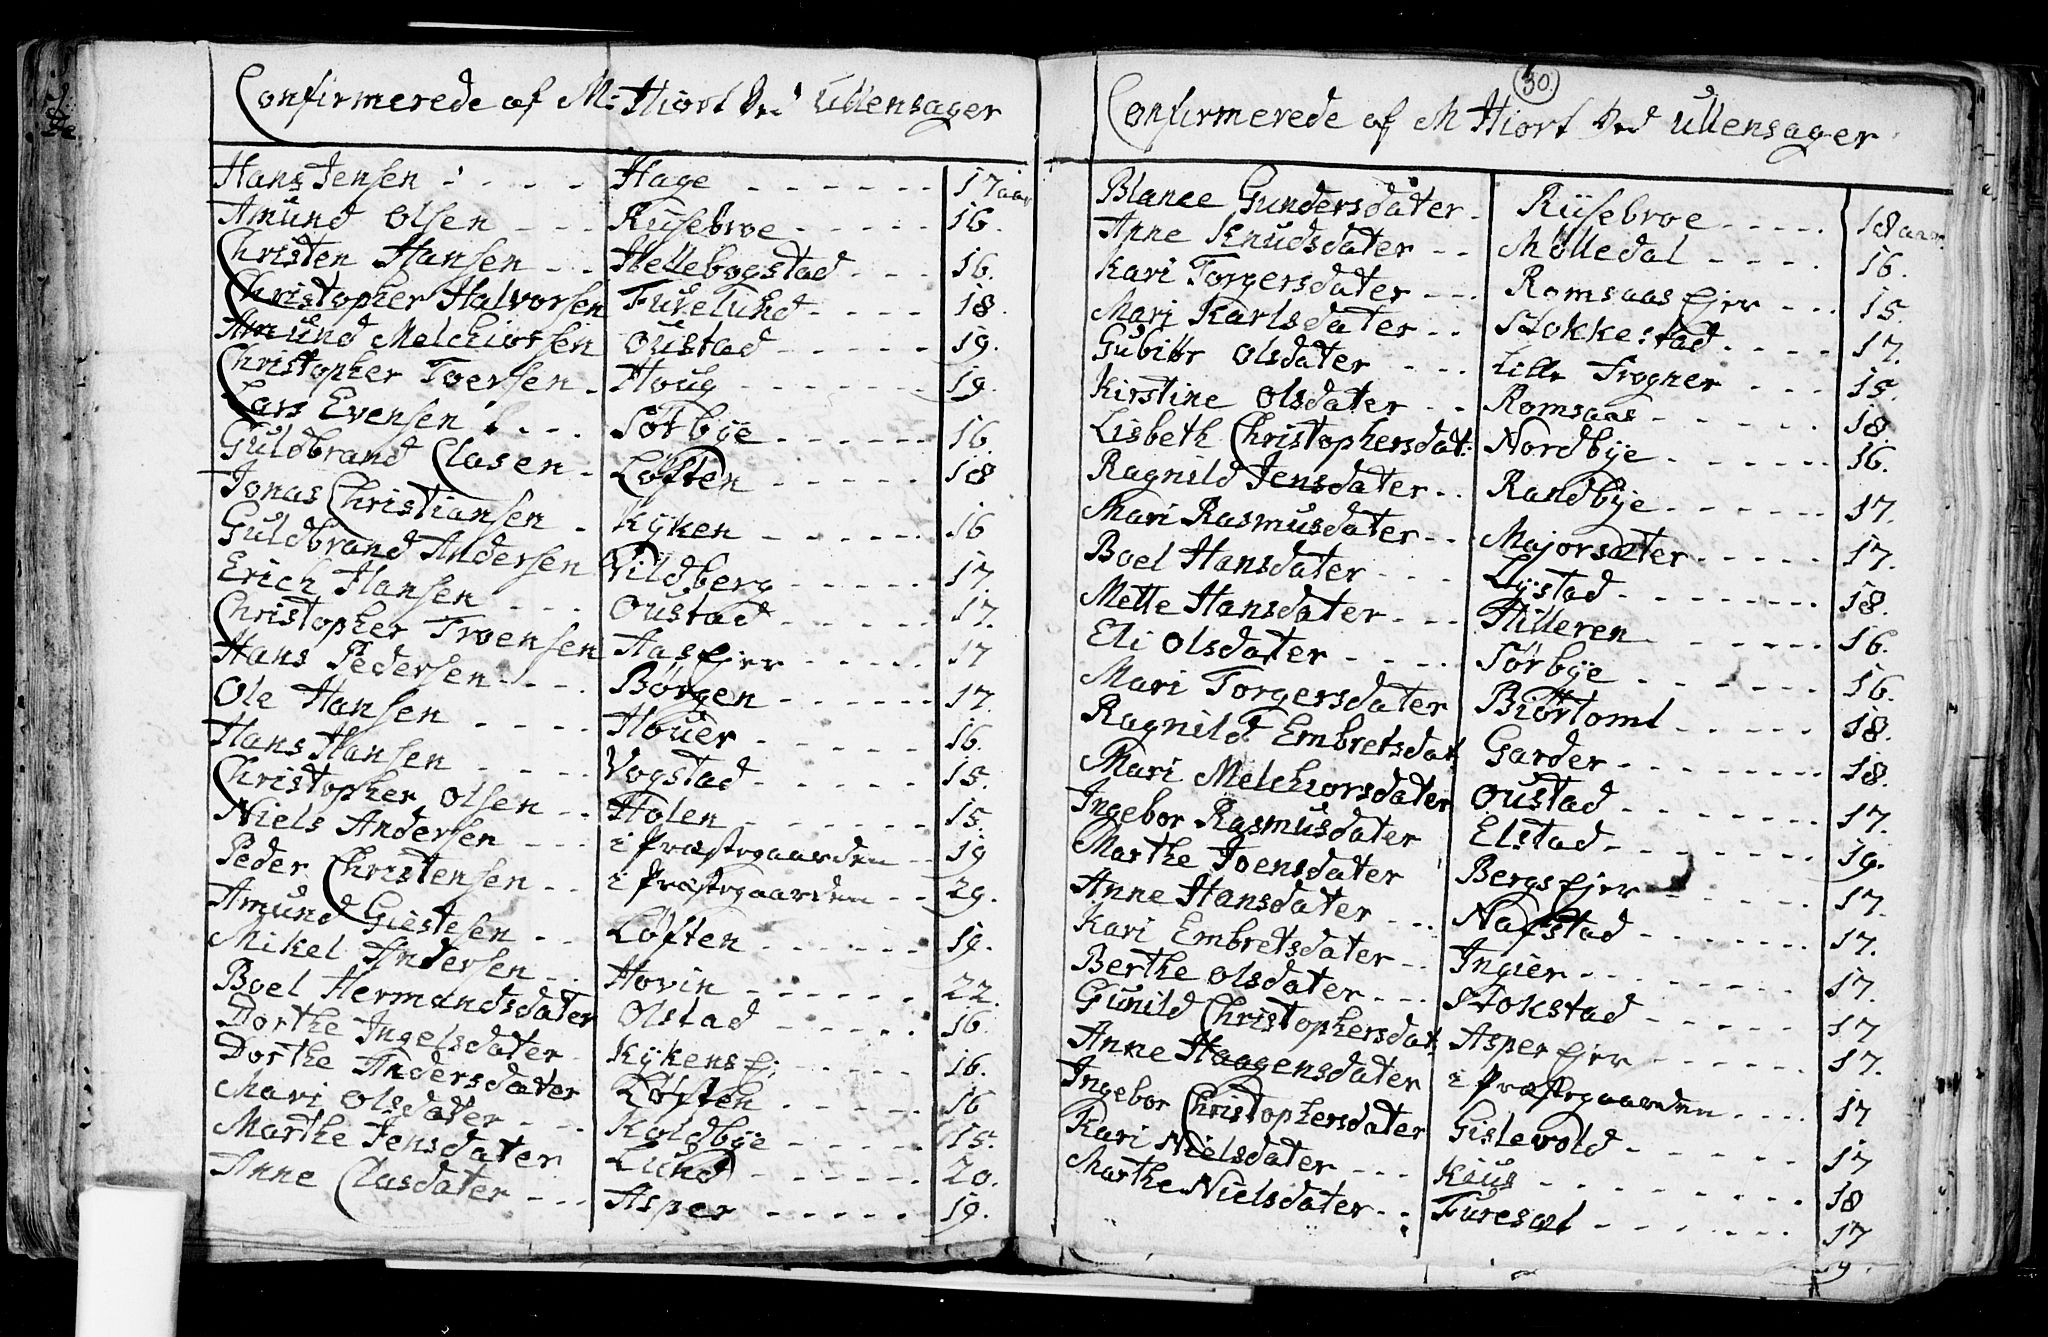 Confirmerede af M: Hiort Ved Ullensager
Hans Jensen - - - - Hage - - - - - - 17 aar
Amund Olsen - - - Riisebroe - - - - - 16.
Christen Hansen - - - Hellebogstad - - - 16.
Christopher Halvorsen Furelund - - - - 18.
Amund Melchiorsen Oustad - - - - - 19.
Christopher Toersen - Houg - - - - - - 19.
Lars Evensen - - - Sørbÿe - - - - - - 16.
Guldbrand Clasen - Løften - - - - - 18
Jonas Christiansen - Kÿken - - - - - 16
Guldbrand Andersen Vildberg - - - - - 17.
Erich Hansen - - - Oustad - - - - - 17.
Christopher Troensen Aas Ejer - - - - 17
Hans Pedersen - - - Børgen - - - - - - 17.
Ole Hansen - - - - Houer - - - - - - 16.
Hans Hansen - - - - Vogstad - - - - - 15.
Christopher Olsen - - Holen - - - - - - 15.
Niels Andersen - - - i Præstegaarden - - 19
Peder Christensen - - i Præstegaarden - - 29.
Amund Giestesen - - Løften - - - - - 19.
Mikel Andersen - - Hovin - - - - - - 22.
Boel Hermandsdater Olstad - - - - - 16.
Dorthe Ingelsdater - Kÿkens Ej: - - - - 16.
Dorthe Andersdater Løften - - - - - 16
Mari Olsdater - - - Koldbÿe - - - - - 15.
Marthe Jensdater Lund - - - - - - 20.
Anne Clasdater - - - Asper - - - - - 19.
30.
Confirmerede af M Hiort Ved Ullensager
Blance Gundersdater - Riisebroe - - - - - 18 aar.
Anne Knudsdater - - Mølledal - - - - 16.
Kari Torgersdater - - - Romsaas Ejer - - - 15.
Mari Karlsdater - - Stokkestad - - - - 17.
Gubiør Olsdater - - - Lille Frogner - - - 15.
Kirstine Olsdater - - Romsaas - - - - - - 18
Lisbeth Christophersdat: Nordbÿe - - - - - - 16.
Ragnild Jensdater - - Randbÿe - - - - - - 17.
Mari Rasmusdater - - Majorsæter - - - - - 17.
Boel Hansdater - - - Lÿstad - - - - - - - 18.
Mette Hansdater - - - Hilleren - - - - - - 16.
Eli Olsdater - - - - Sørbÿe - - - - - - - 16.
Mari Torgersdater Biørtomt - - - - - 18.
Ragnild Embretsdat Garder - - - - - - - 18.
Mari Melchiorsdater Oustad - - - - - - 17.
Ingebor Rasmusdater Elstad - - - - - - - 19.
Marthe Joensdater Bergs Ejer - - - - 17.
Anne Hansdater - - - Nafstad - - - - - - 17.
Kari Embretsdater - - Ingier - - - - - - - 17.
Berthe Olsdater - - - Stokstad - - - - - 17
Gunild Christophersdat: Asper Ejer - - - - 17.
Anne Haagensdater i Præstegaarden - - - - 17
Ingebor Christophersdater Gislevold - - - - - - 17
Kari Nielsdater - - - Kius - - - - - - - - 18
Marthe Nielsdater - - Furesæt - - - - - - 17